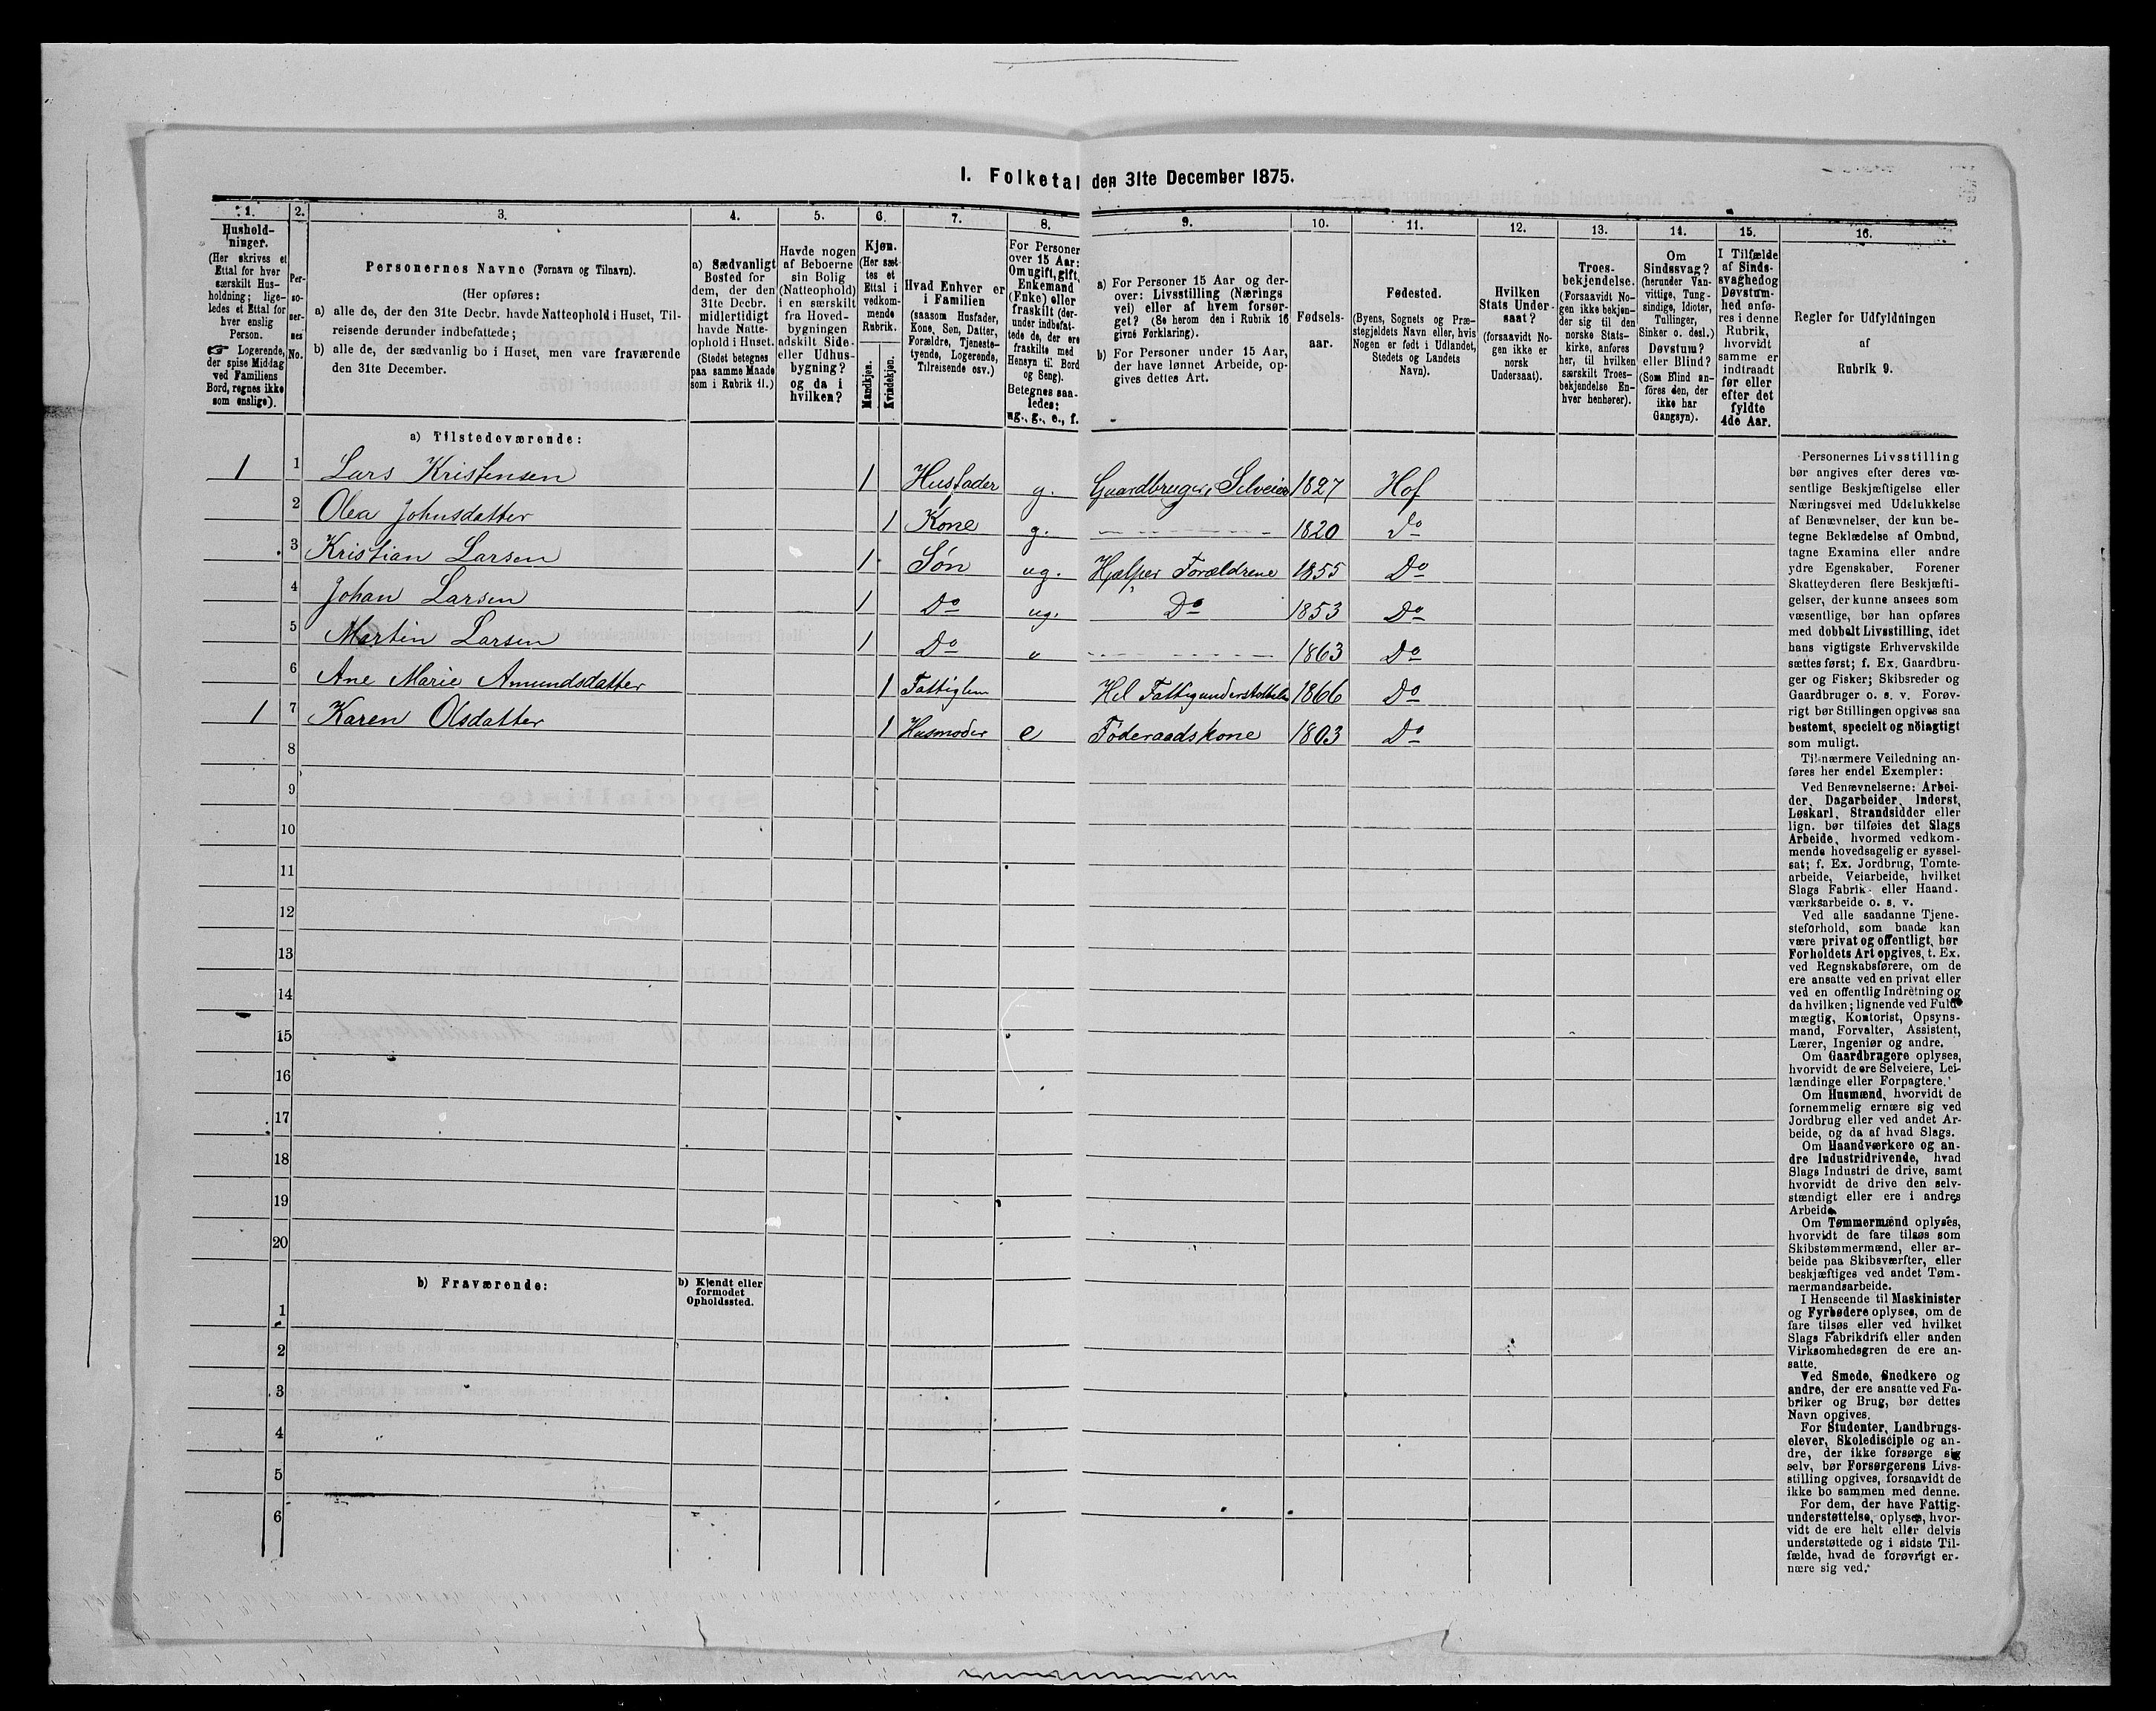 I. Folketal den 31te December 1875.
1. 2. 3. 4. 5. 6. 7. 8. 9. 10. 11. 12. 13. 14. 15. 16.
Hushold-
ninger.
(Her skrives et
Ettal for hver
særskilt Hus-
holdning; lige-
ledes et Ettal for
hver enslig
Person.
☞ Logerende,
der spise Middag
ved Familiens
Bord, regnes ikke
som enslige).
Per-
so-
ner-
nes
No.
Personernes Navne (Fornavn og Tilnavn).
(Her opføres:
a) alle de, der den 31te Decbr. havde Natteophold i Huset, Til-
reisende derunder indbefattede;
b) alle de, der sædvanlig bo i Huset, men vare fraværende
den 31te December.
a) Sædvanligt
Bosted for
dem, der den
31te Decbr.
midlertidigt
havde Natte-
ophold i Huset.
(Stedet betegnes
paa samme Maade
som i Rubrik 11.)
Havde nogen
af Beboerne
sin Bolig
(Natteophold)
i en særskilt
fra Hoved-
bygningen
adskilt Side-
eller Udhus-
bygning?
og da i
hvilken?
Kjøn.
(Her sæt-
tes et
Ettal i
vedkom-
mende
Rubrik.
Mandkjøn.
Kvindekjøn.
Hvad Enhver er
i Familien
(saasom Husfader,
Kone, Søn, Datter,
Forældre, Tjeneste-
tyende, Logerende,
Tilreisende osv.)
For Personer
over 15 Aar:
Om ugift, gift,
Enkemand
(Enke) eller
fraskilt (der-
under indbefat-
tede de, der ere
fraskilte med
Hensyn til Bord
og Seng).
Betegnes saa-
ledes:
ug., g., e., f.
a) For Personer 15 Aar og der-
over: Livsstilling (Nærings
vei) eller af hvem forsør-
get? (Se herom den i Rubrik 16
givne Forklaring).
b) For Personer under 15 Aar,
der have lønnet Arbeide, op-
gives dettes Art.
Fødsels-
aar.
Fødested.
(Byens, Sognets og Præ-
stegjeldets Navn eller, hvis
Nogen er født i Udlandet,
Stedets og Landets
Navn).
Hvilken
Stats Under-
saat?
(forsaavidt No-
gen ikke er
norsk
Undersaat).
Troes-
bekjendelse.
(Forsaavidt No-
gen ikke bekjen-
der sig til den
norske Stats-
kirke, anføres
her, til hvilken
særskilt Troes-
bekjendelse En-
hver henhører).
Om
Sindssvag?
(herunder Van-
vittige, Tung-
sindige, Idioter,
Tullinger,
Sinker o. desl.)
Døvstum?
eller Blind?
(Som Blind an-
føres den, der
ikke har
Gangsyn).
I Tilfælde
af Sinds-
svaghed og
Døvstum-
hed anfø-
res i denne
Rubrik,
hvorvidt
samme er
indtraadt
før eller
efter det
fyldte
4de Aar.
Regler for Udfyldningen
af
Rubrik 9.
a) Tilstedeværende:
1 1 Lars Kristensen 1 Husfader g. Gaardbruger, Selveier 1827 Hof
2 Olea Johnsdatter 1 Kone g. 1820 Do
3 Kristian Larsen 1 Søn ug. Hjælper Forældrene 1855 Do
4 Johan Larsen 1 Do ug. Do 1853 Do
5 Martin Larsen 1 Do " 1863 Do
6 Ane Marie Amundsdatter 1 Fattiglem Hel Fattigunderstøttelse 1866 Do
1 7 Karen Olsdatter 1 Husmoder e Føderaadskone 1803 Do
8
9
10
11
12
13
14
15
16
17
18
19
20
b) Fraværende:
b) Kjendt eller
formodet
Opholdssted.
1
2
3
4
5
6
Personernes Livsstilling
bør angives efter deres væ-
sentlige Beskjæftigelse eller
Næringsvei med Udelukkelse
af Benævnelser, der kun be-
tegne Beklædelse af Ombud,
tagne Examina eller andre
ydre Egenskaber. Forener
Skatteyderen flere Beskjæfti-
gelser, der kunne ansees som
væsentlige, bør han opføres
med dobbelt Livsstilling, idet
hans vigtigste Erhvervskilde
sættes først; f. Ex. Gaardbru-
ger og Fisker; Skibsreder og
Gaardbruger o. s. v. Forøv-
rigt bør Stillingen opgives saa
bestemt, specielt og nöiagtigt
som muligt.
Til nærmere Veiledning an-
føres her endel Exempler:
Ved Benævnelserne: Arbei-
der, Dagarbeider, Inderst,
Løskarl, Strandsidder eller
lign. bør tilføies det Slags
Arbeide, hvormed vedkom-
mende hovedsagelig er syssel-
sat; f. Ex. Jordbrug, Tomte-
arbeide, Veiarbeide, hvilket
Slags Fabrik- eller Haand-
værksarbeide o. s. v.
Ved alle saadanne Tjene-
steforhold, som baade kan
være privat og offentligt, bør
Forholdets Art opgives, t. Ex.
ved Regnskabsførere, om de
ere ansatte ved en privat eller
ved en offentlig Indretning og
da hvilken; lignende ved Fuld-
mægtig, Kontorist, Opsyns-
mand, Forvalter, Assistent,
Lærer, Ingeniør og andre.
Om Gaardbrugere oplyses,
hvorvidt de ere Selveiere, Lei-
lændinge eller Forpagtere.
Om Husmænd, hvorvidt de
fornemmelig ernære sig ved
Jordbrug eller ved andet Ar-
beide, og da af hvad Slags.
Om Haandværkere og an-
dre Industridrivende, hvad
Slags Industri de drive, samt
hvorvidt de drive den selv-
stændigt eller ere i andres
Arbeide.
Om Tømmermænd oplyses,
hvorvidt de fare tilsøs som
Skibstømmermænd, eller ar-
beide paa Skibsværfter, eller
beskjæftiges ved andet Tøm-
mermandsarbeide.
I Henseende til Maskinister
og Fyrbødere oplyses, om de
fare tilsøs eller ved hvilket
Slags Fabrikdrift eller anden
Virksomhedsgren de ere an-
satte.
Ved Smede, Snedkere og
andre, der ere ansatte ved Fa-
briker og Brug, bør dettes
Navn opgives.
For Studenter, Landbrugs-
elever, Skoledisciple og an-
dre, der ikke forsørge sig
selv, bør Forsørgerens Livs-
stilling opgives, forsaavidt de
ikke bo sammen med denne.
For dem, der have Fattig-
understøttelse, oplyses, hvor-
vidt de ere helt eller delvis
understøttede og i sidste Til-
fælde, hvad de forøvrigt er-
nære sig ved.